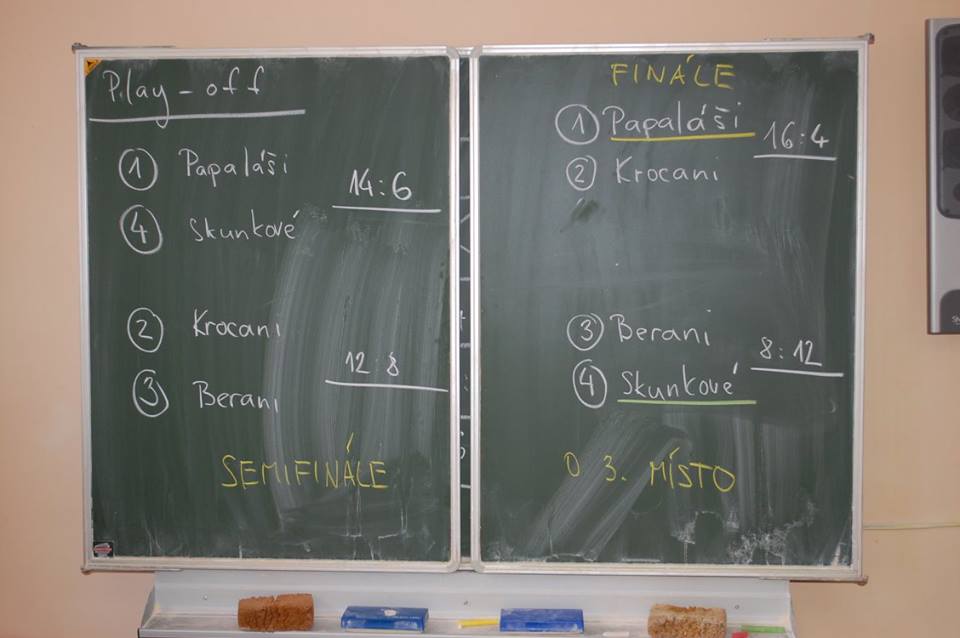 Play - off
1 Papaláši
14:6
4 Skunkové
2 Krocani
12:8
3 Berani
SEMIFINÁLE
FINÁLE
1 Papaláši
16:4
2 Krocani
3 Berani
8:12
4 Skunkové
O 3. MÍSTO